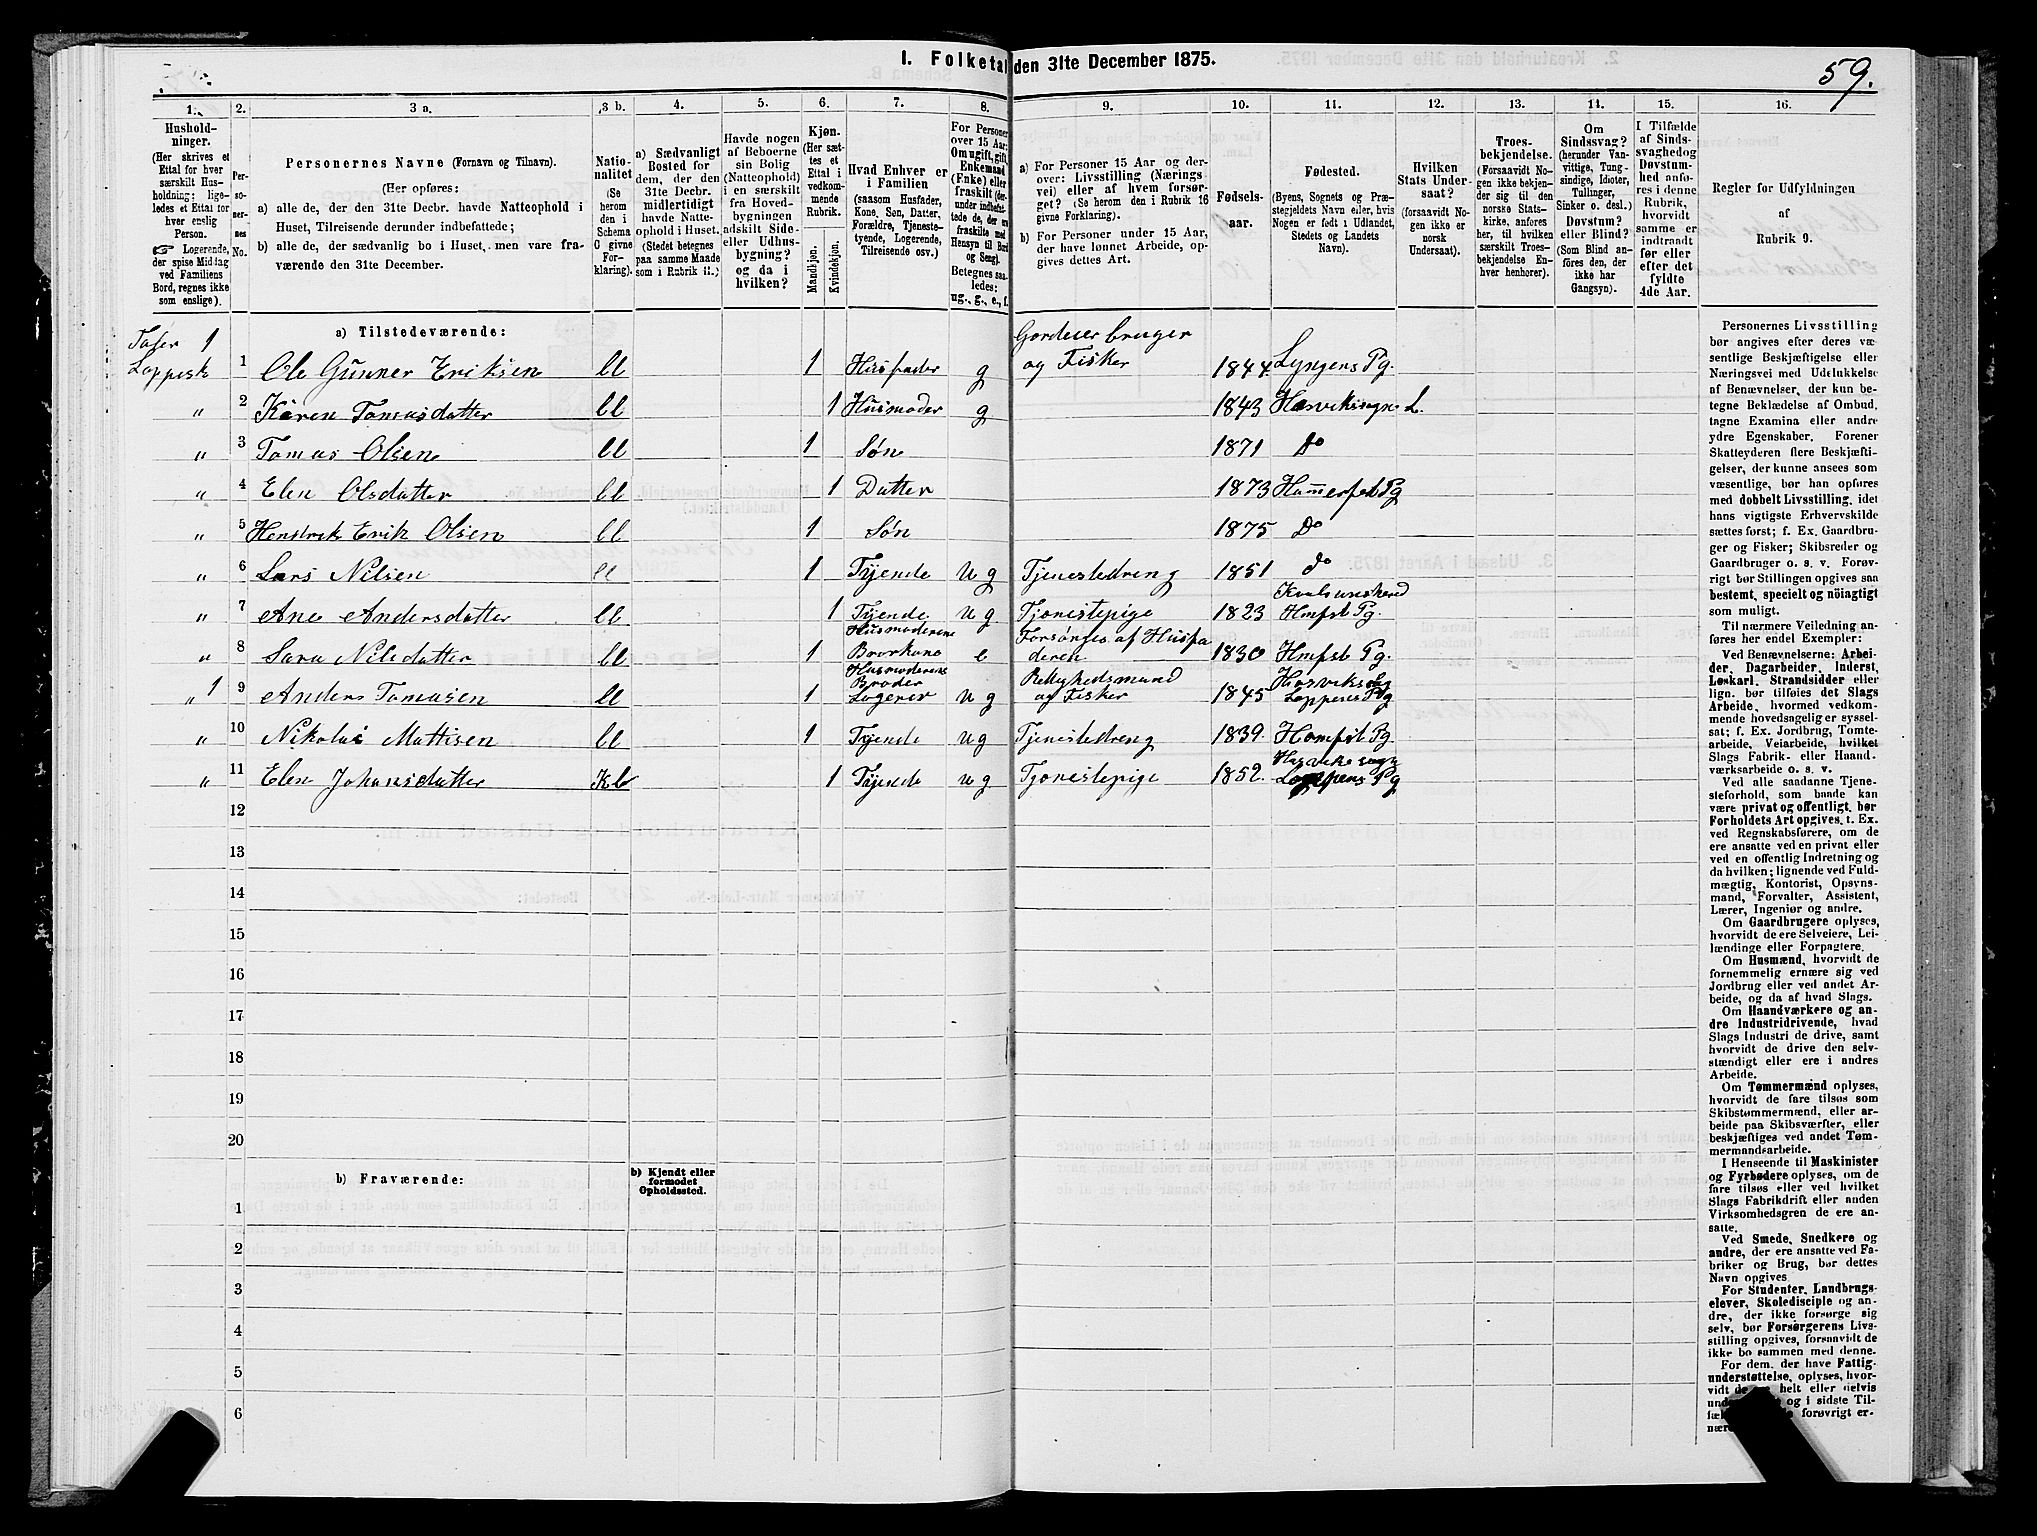 1. Folketal den 31te December 1875.
59.
1.
Hushold-
ninger.
(Her skrives et
Ettal for hver
særskilt Hus-
holdning; lige-
ledes et Ettal for
hver enslig
Person.
Logerende,
der spise Middag
ved Familiens
Bord, regnes ikke
som enslige).
2.
Per-
so-
ner-
nes
No.
3 a.
Personernes Navne (Fornavn og Tilnavn).
(Her opføres:
a) alle de, der den 31te Decbr. havde Natteophold i
Huset, Tilreisende derunder indbefattede;
b) alle de, der sædvanlig bo i Huset, men vare fra-
værende den 31te December.
3 b.
Natio-
nalitet
(Se
herom
den i
Schema
C givne
For-
klaring).
4.
a) Sædvanligt
Bosted for
dem, der den
31te Decbr.
midlertidigt
havde Natte-
ophold i Huset.
(Stedet betegnes
paa samme Maade
som i Rubrik 11.)
5.
Havde nogen
af Beboerne
sin Bolig
(Natteophold)
i en særskilt
fra Hoved-
bygningen
adskilt Side-
eller Udhus-
bygning?
og da i
hvilken?
6.
Kjøn.
(Her sæt-
tes et
Ettal i
vedkom-
mende
Rubrik.
Mandkjøn.
Kvindekjøn.
7.
Hvad Enhver er
i Familien
(saasom Husfader,
Kone, Søn, Datter,
Forældre, Tjeneste-
tyende, Logerende,
Tilreisende osv.)
8.
For Personer
over 15 Aar:
Om ugift, gift,
Enkemand
(Enke) eller
fraskilt (der-
under indbefat-
tede de, der ere
fraskilte med
Hensyn til Bord
og Seng).
Betegnes saa-
ledes:
ug., g., e., f.
9.
a) For Personer 15 Aar og der-
over: Livsstilling (Nærings-
vei) eller af hvem forsør-
get? (Se herom den i Rubrik 16
givne Forklaring).
b) For Personer under 15 Aar,
der have lønnet Arbeide, op-
gives dettes Art.
10.
Fødsels-
aar.
11.
Fødested.
(Byens, Sognets og Præ-
stegjeldets Navn eller, hvis
Nogen er født i Udlandet,
Stedets og Landets
Navn).
12.
Hvilken
Stats Under-
saat?
(forsaavidt No-
gen ikke er
norsk
Undersaat).
13.
Troes-
bekjendelse.
(Forsaavidt No-
gen ikke bekjen-
der sig til den
norske Stats-
kirke, anføres
her, til hvilken
særskilt Troes-
bekjendelse En-
hver henhører).
14.
Om
Sindssvag?
(herunder Van-
vittige, Tung-
sindige, Idioter,
Tullinger,
Sinker o. desl.)
Døvstum?
eller Blind?
(Som Blind an-
føres den, der
ikke har
Gangsyn).
15.
I Tilfælde
af Sinds-
svaghed og
Døvstum-
hed anfø-
res i denne
Rubrik,
hvorvidt
samme er
indtraadt
før eller
efter det
fyldte
4de Aar.
16.
Regler for Udfyldningen
af
Rubrik 9.
a) Tilstedeværende:
1
Loppesk 1 Ole Gunner Eriksen ll 1 Husfader g Gordeier bruger og Fisker 1844. Lyngens Pg.
„ 2 Karen Tomasdatter ll 1 Husmoder g 1843 Hasviksogn L.
„ 3 Tomas Olsen ll 1 Søn 1871 Do
„ 4 Elen Olsdatter ll 1 Datter 1873 Hammerfst Pg
„ 5 Hendrik Erik Olsen ll 1 Søn 1875 Do
„ 6 Lars Nilsen ll 1 Tyende ug Tjenestedreng 1851 do
„ 7 Ane Andersdatter ll 1 Tyende ug Tjenestepige 1823 Hmfst Pg.
„ 8 Sara Nilsdatter ll 1 Husmoderens Brorkone e Forsørges af Husfaderen 1830 Hmfst Pg.
„ 1 9 Anders Tomasen ll 1 Husmoderens Broder Logerer ug og Fisker 1845 Hasviksog Loppens Pg
„ 10 Nikolai Mattisen ll 1 Tyende ug Tjenestedreng 1839. Hamfst Pg.
„ 11 Elen Johansdatter Kl 1 Tyende ug Tjenestepige 1852. Hasviksogn Loppens Pg
12
13
14
15
16
17
18
19
20
b) Fraværende:
b) Kjendt eller
formodet
Opholdssted.
1
2
3
4
5
6
Personernes Livsstilling
bør angives efter deres væ-
sentlige Beskjæftigelse eller
Næringsvei med Udelukkelse
af Benævnelser, der kun be-
tegne Beklædelse af Ombud,
tagne Examina eller andre
ydre Egenskaber. Forener
Skatteyderen flere Beskjæfti-
gelser, der kunne ansees som
væsentlige, bør han opføres
med dobbelt Livsstilling, idet
hans vigtigste Erhvervskilde
sættes først; f. Ex. Gaardbru-
ger og Fisker; Skibsreder og
Gaardbruger o. s. v. Forøv-
rigt bør Stillingen opgives saa
bestemt, specielt og nøiagtigt
som muligt.
Til nærmere Veiledning an-
føres her endel Exempler:
Ved Benævnelserne: Arbei-
der, Dagarbeider, Inderst,
Løskarl, Strandsidder eller
lign. bør tilføies det Slags
Arbeide, hvormed vedkom-
mende hovedsagelig er syssel-
sat; f. Ex. Jordbrug, Tomte-
arbeide, Veiarbeide, hvilket
Slags Fabrik- eller Haand-
værksarbeide o. s. v.
Ved alle saadanne Tjene-
steforhold, som baade kan
være privat og offentligt, bør
Forholdets Art opgives, t. Ex.
ved Regnskabsførere, om de
ere ansatte ved en privat eller
ved en offentlig Indretning og
da hvilken; lignende ved Fuld-
mægtig, Kontorist, Opsyns-
mand, Forvalter, Assistent,
Lærer, Ingeniør og andre.
Om Gaardbrugere oplyses,
hvorvidt de ere Selveiere, Lei-
lændinge eller Forpagtere.
Om Husmænd, hvorvidt de
fornemmelig ernære sig ved
Jordbrug eller ved andet Ar-
beide, og da af hvad Slags.
Om Haandværkere og an-
dre Industridrivende, hvad
Slags Industri de drive, samt
hvorvidt de drive den selv-
stændigt eller ere i andres
Arbeide.
Om Tømmermænd oplyses,
hvorvidt de fare tilsøs som
Skibstømmermænd, eller ar-
beide paa Skibsværfter, eller
beskjæftiges ved andet Tøm-
mermandsarbeide.
I Henseende til Maskinister
og Fyrbødere oplyses, om de
fare tilsøs eller ved hvilket
Slags Fabrikdrift eller anden
Virksomhedsgren de ere an-
satte.
Ved Smede, Snedkere og
andre, der ere ansatte ved Fa-
briker og Brug, bør dettes
Navn opgives.
For Studenter, Landbrugs-
elever, Skoledisciple og an-
dre, der ikke forsørge sig
selv, bør Forsørgerens Livs-
stilling opgives, forsaavidt de
ikke bo sammen med denne.
For dem, der have Fattig-
understøttelse, oplyses, hvor-
vidt de helt eller delvis
og i sidste Til-
forøvrigt er-